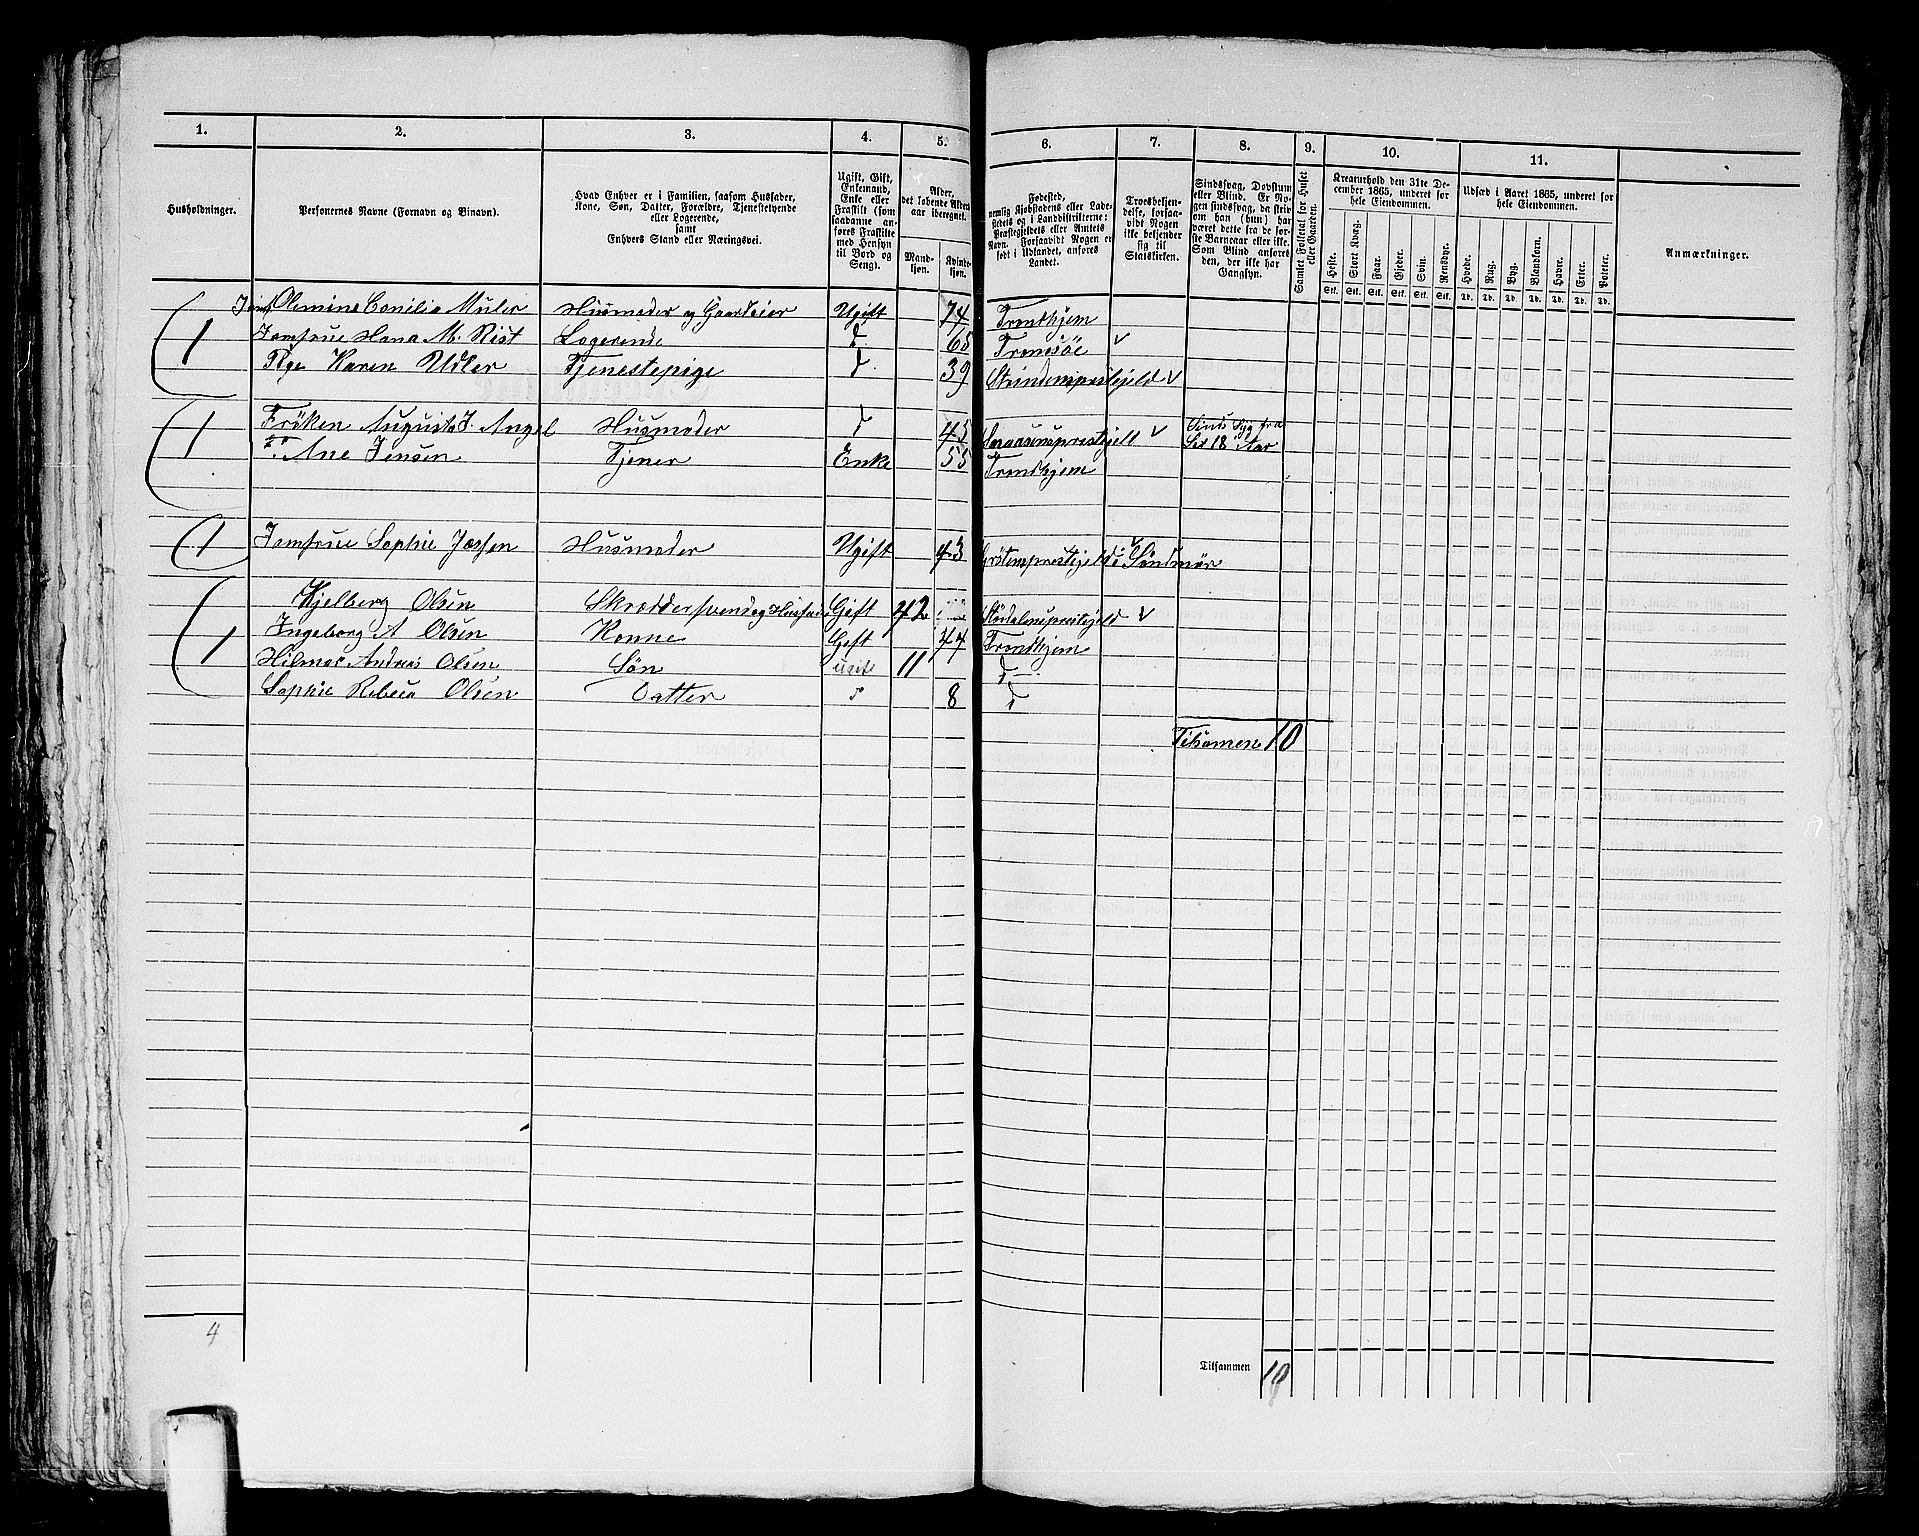 1. 2. 3. 4. 5. 6. 7. 8. 9. 10. 11.
Husholdninger.
Personernes Navne (Fornavn og Binavn).
Hvad Enhver er i Familien, saasom Husfader,
Kone, Søn, Datter, Forældre, Tjenestetyende
eller Logerende,
samt
Enhvers Stand eller Næringsvei.
Ugift, Gift,
Enkemand,
Enke eller
Fraskilt (som
saadanne an-
føres Fraskilte
med Hensyn
til Bord og
Seng).
Alder,
det løbende Alders-
aar iberegnet.
Mand-
kjøn.
Kvinde-
kjøn.
Fødested,
nemlig Kjøbstadens eller Lade-
stedets og i Landdistrikterne:
Præstegjeldets eller Amtets
Navn. Forsaavidt Nogen er
født i Udlandet, anføres
Landet.
Troesbekjen-
delse, forsaa-
vidt Nogen
ikke bekjender
sig til
Statskirken.
Sindssvag, Døvstum
eller Blind. Er No-
gen sindssvag, da skriv
om han (hun) har
været dette fra de før-
ste Barneaar eller ikke.
Som Blind anføres
den, der ikke har
Gangsyn.
Samlet Folketal for Huset
eller Gaarden.
Kreaturhold den 31te De-
cember 1865, underet for
hele Eiendommen.
Heste. Stort Kvæg. Faar. Gjeder. Svin. Rensdyr.
Stk. Stk. Stk. Stk. Stk. Stk.
Udsæd i Aaret 1865, underet for
hele Eiendommen.
Hvede. Rug. Byg. Blandkorn. Havre. Erter. Poteter.
Td. Td. Td. Td. Td. Td. Td.
Anmærkninger.
Olemine Conilia Muler Husmoder og Gaardeier Ugift 74 Trondhjem
1 Jomfrue Hana M. Rist Logerende d 68 Tromsöe
Pige Karen Udler Tjenestepige d 39 Strindenspræstejeld
1 Fröken Augusta J. Angel Husmoder d 45 Sinds Syg fra
do Ane Jensen Tjener Enke 55 Trondhjem Sit 18 Aar
1 Jomfrue Sophie Jessen Husmoder Ugift 43 Söndmör
Kjelberg Olsen Skrædder svend og Gift 42 Stördalenspræstejeld
1 Ingeborg A Olsen Konne Geft 44 Trondhjem
Hilmar Andreas Olsen Sön ugift 11 d
Sophie Rebeca Olsen Datter d 8 d
Tilsamen 10
4 Tilsammen 10